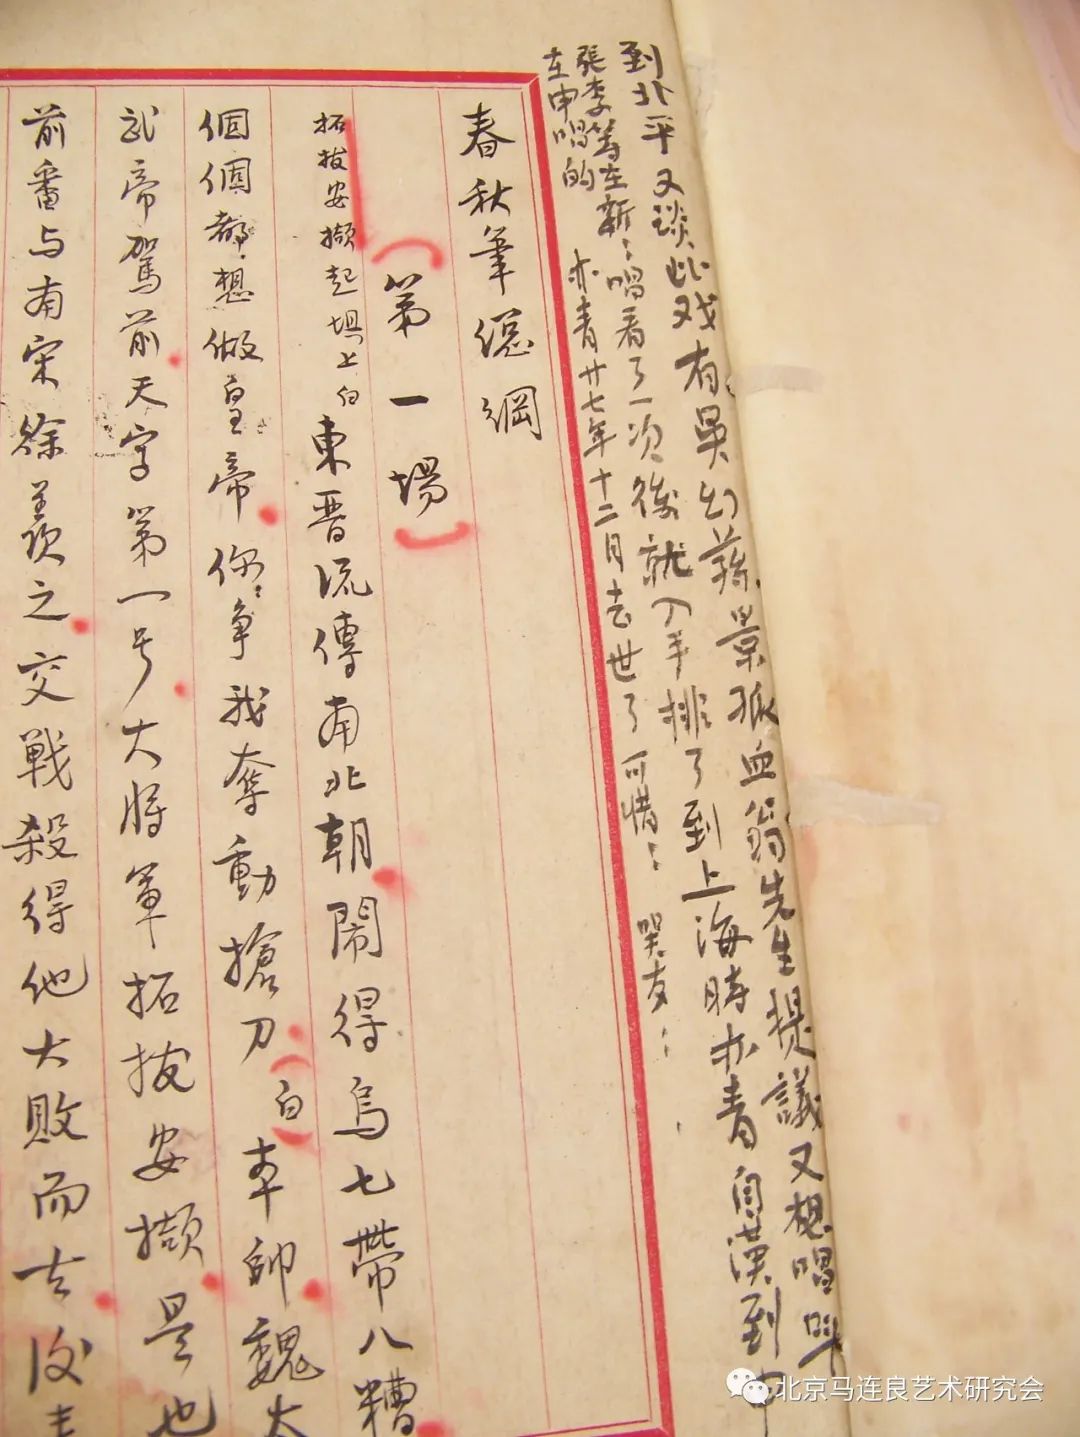 到北平又谈此戏有吴幻荪景孤血翁先生提議又想唱叫
張李等在新:唱看了一次後就入手排了到上海時亦青自漢到申
在申唱的 亦青廿七年十二月去世了可惜:哭友:
春秋筆總綱
(第一場)
拓拔安擷起壩上白東晋流傳南北朝鬧得烏七帶八糟
個個都想做皇帝你:争我奪動搶刀(白)本帥魏太
武帝駕前天字第一号大將軍拓拔安擷是也
前番与南宋徐羡之交戰殺得他大敗而去
北京马连良艺术研究会